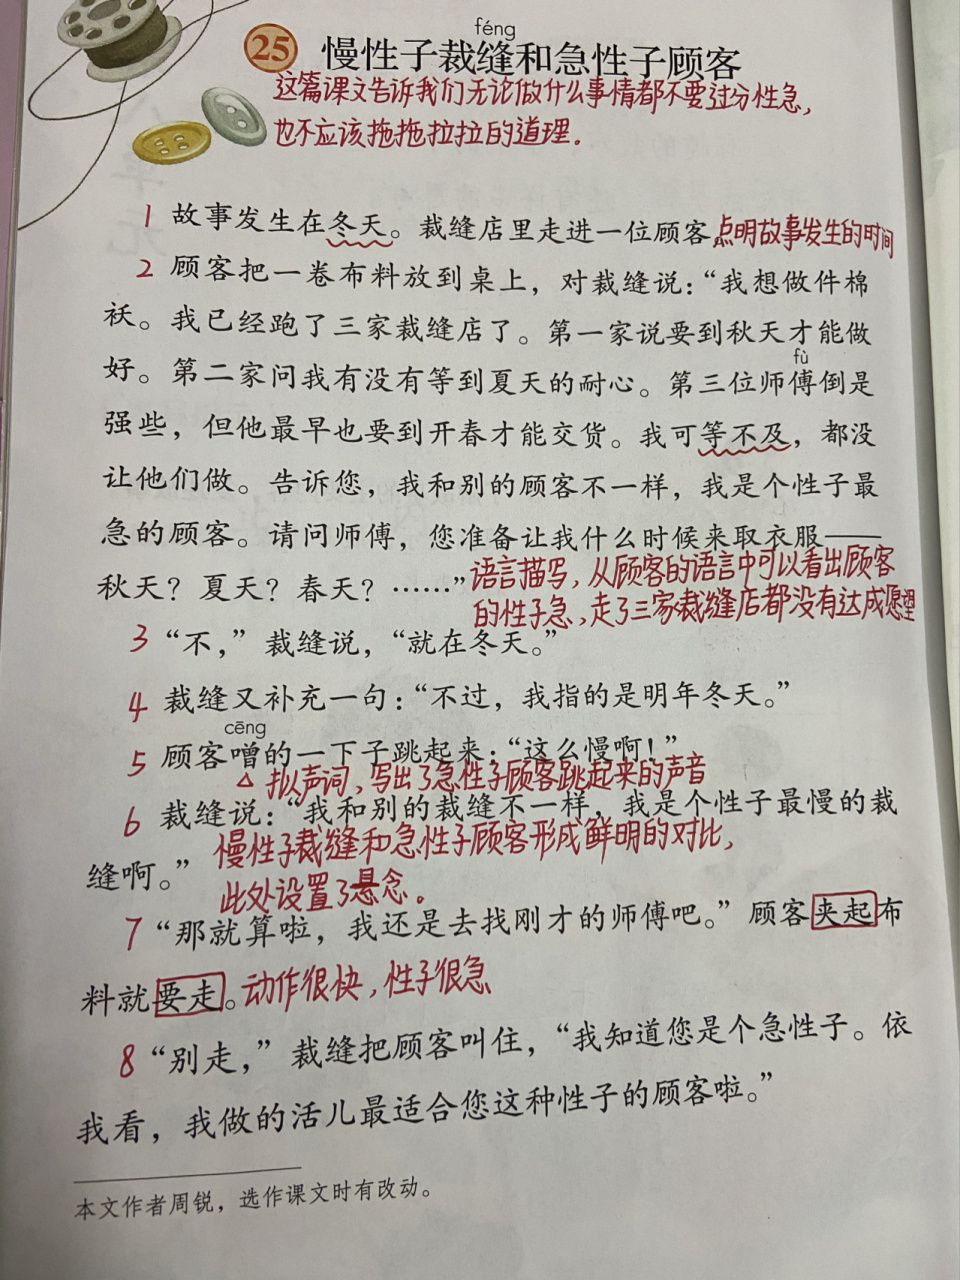 féng
25 慢性子裁缝和急性子顾客
这篇课文告诉我们无论做什么事情都不要过分性急，
也不应该拖拖拉拉的道理。
1 故事发生在冬天。裁缝店里走进一位顾客 点明故事发生的时间
2 顾客把一卷布料放到桌上，对裁缝说：“我想做件棉
袄。我已经跑了三家裁缝店了。第一家说要到秋天才能做
fù
好。第二家问我有没有等到夏天的耐心。第三位师傅倒是
强些，但他最早也要到开春才能交货。我可等不及，都没
让他们做。告诉您，我和别的顾客不一样，我是个性子最
急的顾客。请问师傅，您准备让我什么时候来取衣服——
秋天？夏天？春天？……” 语言描写，从顾客的语言中可以看出顾客
的性子急，走了三家裁缝店都没有达成愿望
3 “不，”裁缝说，“就在冬天。”
4 裁缝又补充一句：“不过，我指的是明年冬天。”
cēng
5 顾客噌的一下子跳起来：“这么慢啊！”
△ 拟声词，写出了急性子顾客跳起来的声音
6 裁缝说：“我和别的裁缝不一样，我是个性子最慢的裁
慢性子裁缝和急性子顾客形成鲜明的对比，
缝啊。”
此处设置了悬念。
7 “那就算啦，我还是去找刚才的师傅吧。”顾客夹起布
料就要走。动作很快，性子很急
8 “别走，”裁缝把顾客叫住，“我知道您是个急性子。依
我看，我做的活儿最适合您这种性子的顾客啦。”
本文作者周锐，选作课文时有改动。